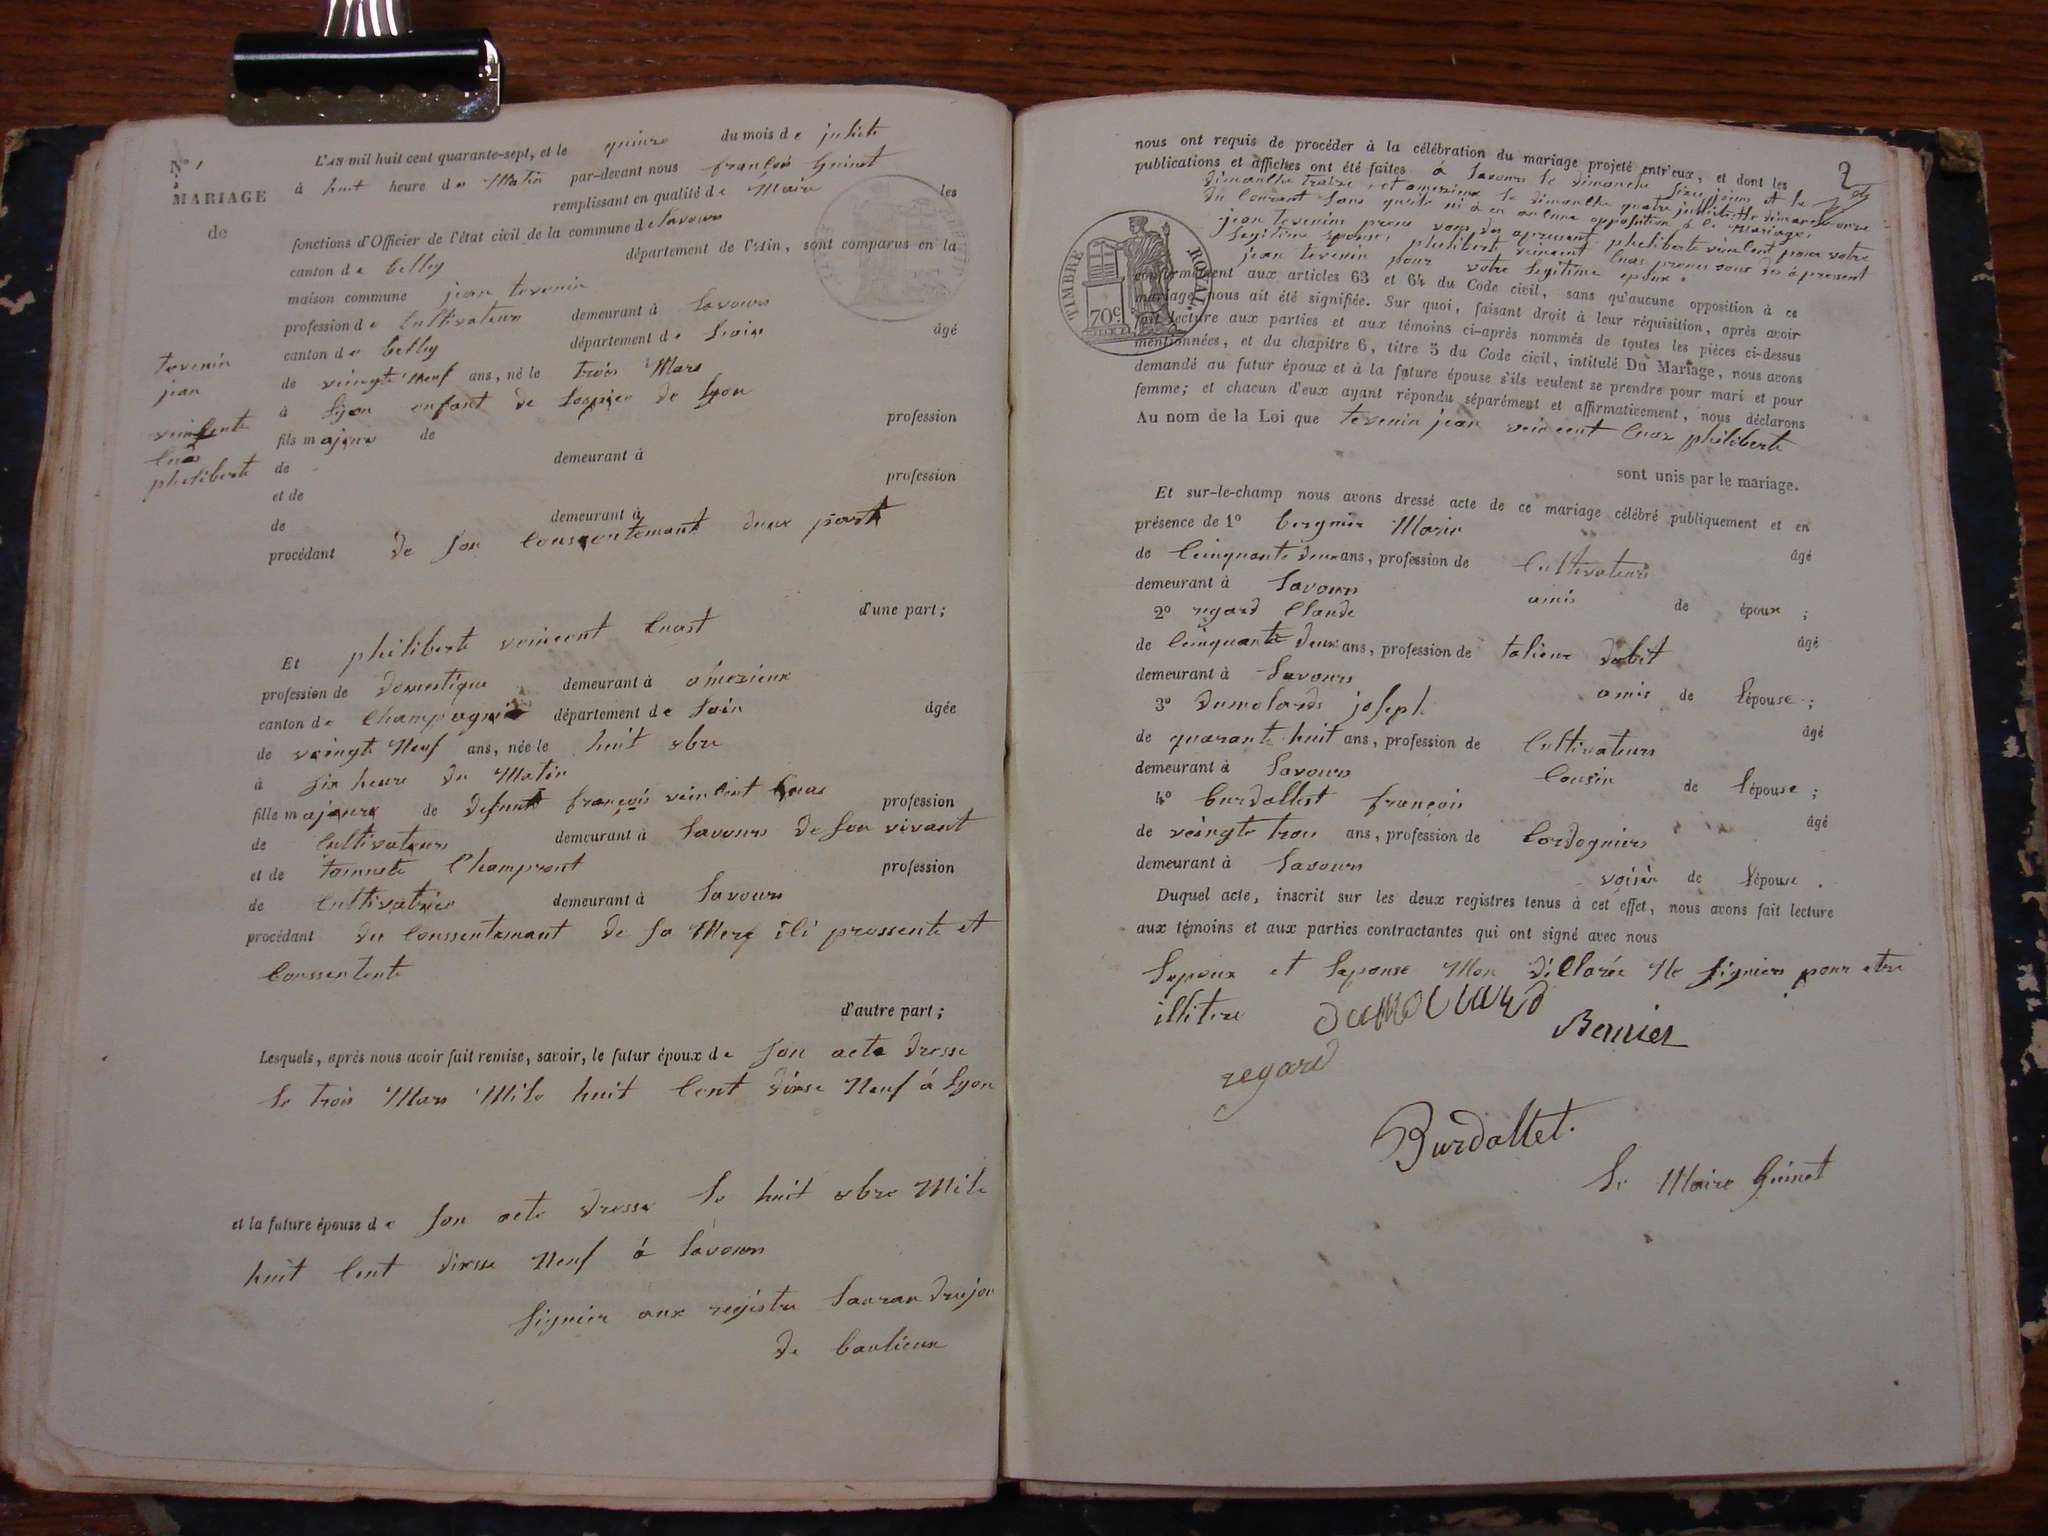 N° 1
MARIAGE
de
tevenin
jean
veincente
Cuas
philiberte
L'AN mil huit cent quarante-sept, et le quinze du mois de juliete
à huit heure du Matin par-devant nous françois Guinet
remplissant en qualité de Maire les
fonctions d'Officier de l'état civil de la commune de Savours
canton de belley département de l'Ain, sont comparus en la
maison commune jean tevenin
profession de Cultivateur demeurant à Savours
canton de belley département de Lain âgé
de veingte Neuf ans, né le trois Mars
à Lyon enfant de Lospice de Lyon
fils majeur de profession
de demeurant à
et de profession
de demeurant à
procédant de son Conscentemant deux part
d'une part;
Et philiberte veincent Cuast
profession de domestique demeurant à amezieux
canton de Champagnie département de Lain âgée
de veingte Neuf ans, née le huit xbre
à six heure du Matin
fille majeure de defunt françois veincent Cuas profession
de Cultivateur demeurant à Savours de son vivant
et de tonnete Champront profession
de Cultivatrice demeurant à Savours
procédant du Conssentemant de sa Mere ili prossente et
Conssentente
d'autre part;
Lesquels, après nous avoir fait remise, savoir, le futur époux de son acte dresse
le trois Mars Mile huit Cent dixse Neuf à Lyon
et la future épouse de son acte dresse le huit xbre Mile
huit Cent dixsse Neuf à Savours
signier aux registre
de baulieux
2
nous ont requis de procéder à la célébration du mariage projeté entr'eux, et dont les
publications et affiches ont été faites à Savours le dimanche size juiens et le
dimanche traize, et amezieux le dimanche quatre juiliete et le dimanche onze
du Courant sans quil ni à en aucune opposition à le Mariage.
jean tevenin prene vous des apressent philiberte veincent pour votre
legitime epouse, philiberte veincent Cuas prenes vous des à present
jean tevenin pour votre legitime epoux.
conformément aux articles 63 et 64 du Code civil, sans qu'aucune opposition à ce
mariage nous ait été signifiée. Sur quoi, faisant droit à leur réquisition, après avoir
fait lecture aux parties et aux témoins ci-après nommés de toutes les pièces ci-dessus
mentionnées, et du chapitre 6, titre 5 du Code civil, intitulé Du Mariage, nous avons
demandé au futur époux et à la future épouse s'ils veulent se prendre pour mari et pour
femme; et chacun d'eux ayant répondu séparément et affirmativement, nous déclarons
Au nom de la Loi que tevenin jean veincent Cuas philiberte
sont unis par le mariage.
TIMBRE ROYAL
70c
Et sur-le-champ nous avons dressé acte de ce mariage célébré publiquement et en
présence de 1° bergnier Marie âgé
de Cinquante deux ans, profession de Cultivateur
demeurant à Savours amis de époux ;
2° regard Claude âgé
de Cinquante deux ans, profession de talieur dabit
demeurant à Savours amis de l'épouse ;
3° dumolards joseph âgé
de quarante huit ans, profession de Cultivateurs
demeurant à Savours Cousin de l'épouse ;
4° burdallet françois âgé
de veingte trois ans, profession de Cordognier
demeurant à Savours voisin de l'épouse .
Duquel acte, inscrit sur les deux registres tenus à cet effet, nous avons fait lecture
aux témoins et aux parties contractantes qui ont signé avec nous
Lepoux et lepouse Mon déllarée Ne signier pour etre
illitere
dumollard
Bernier
regard
Burdallet.
Le Maire Guinet